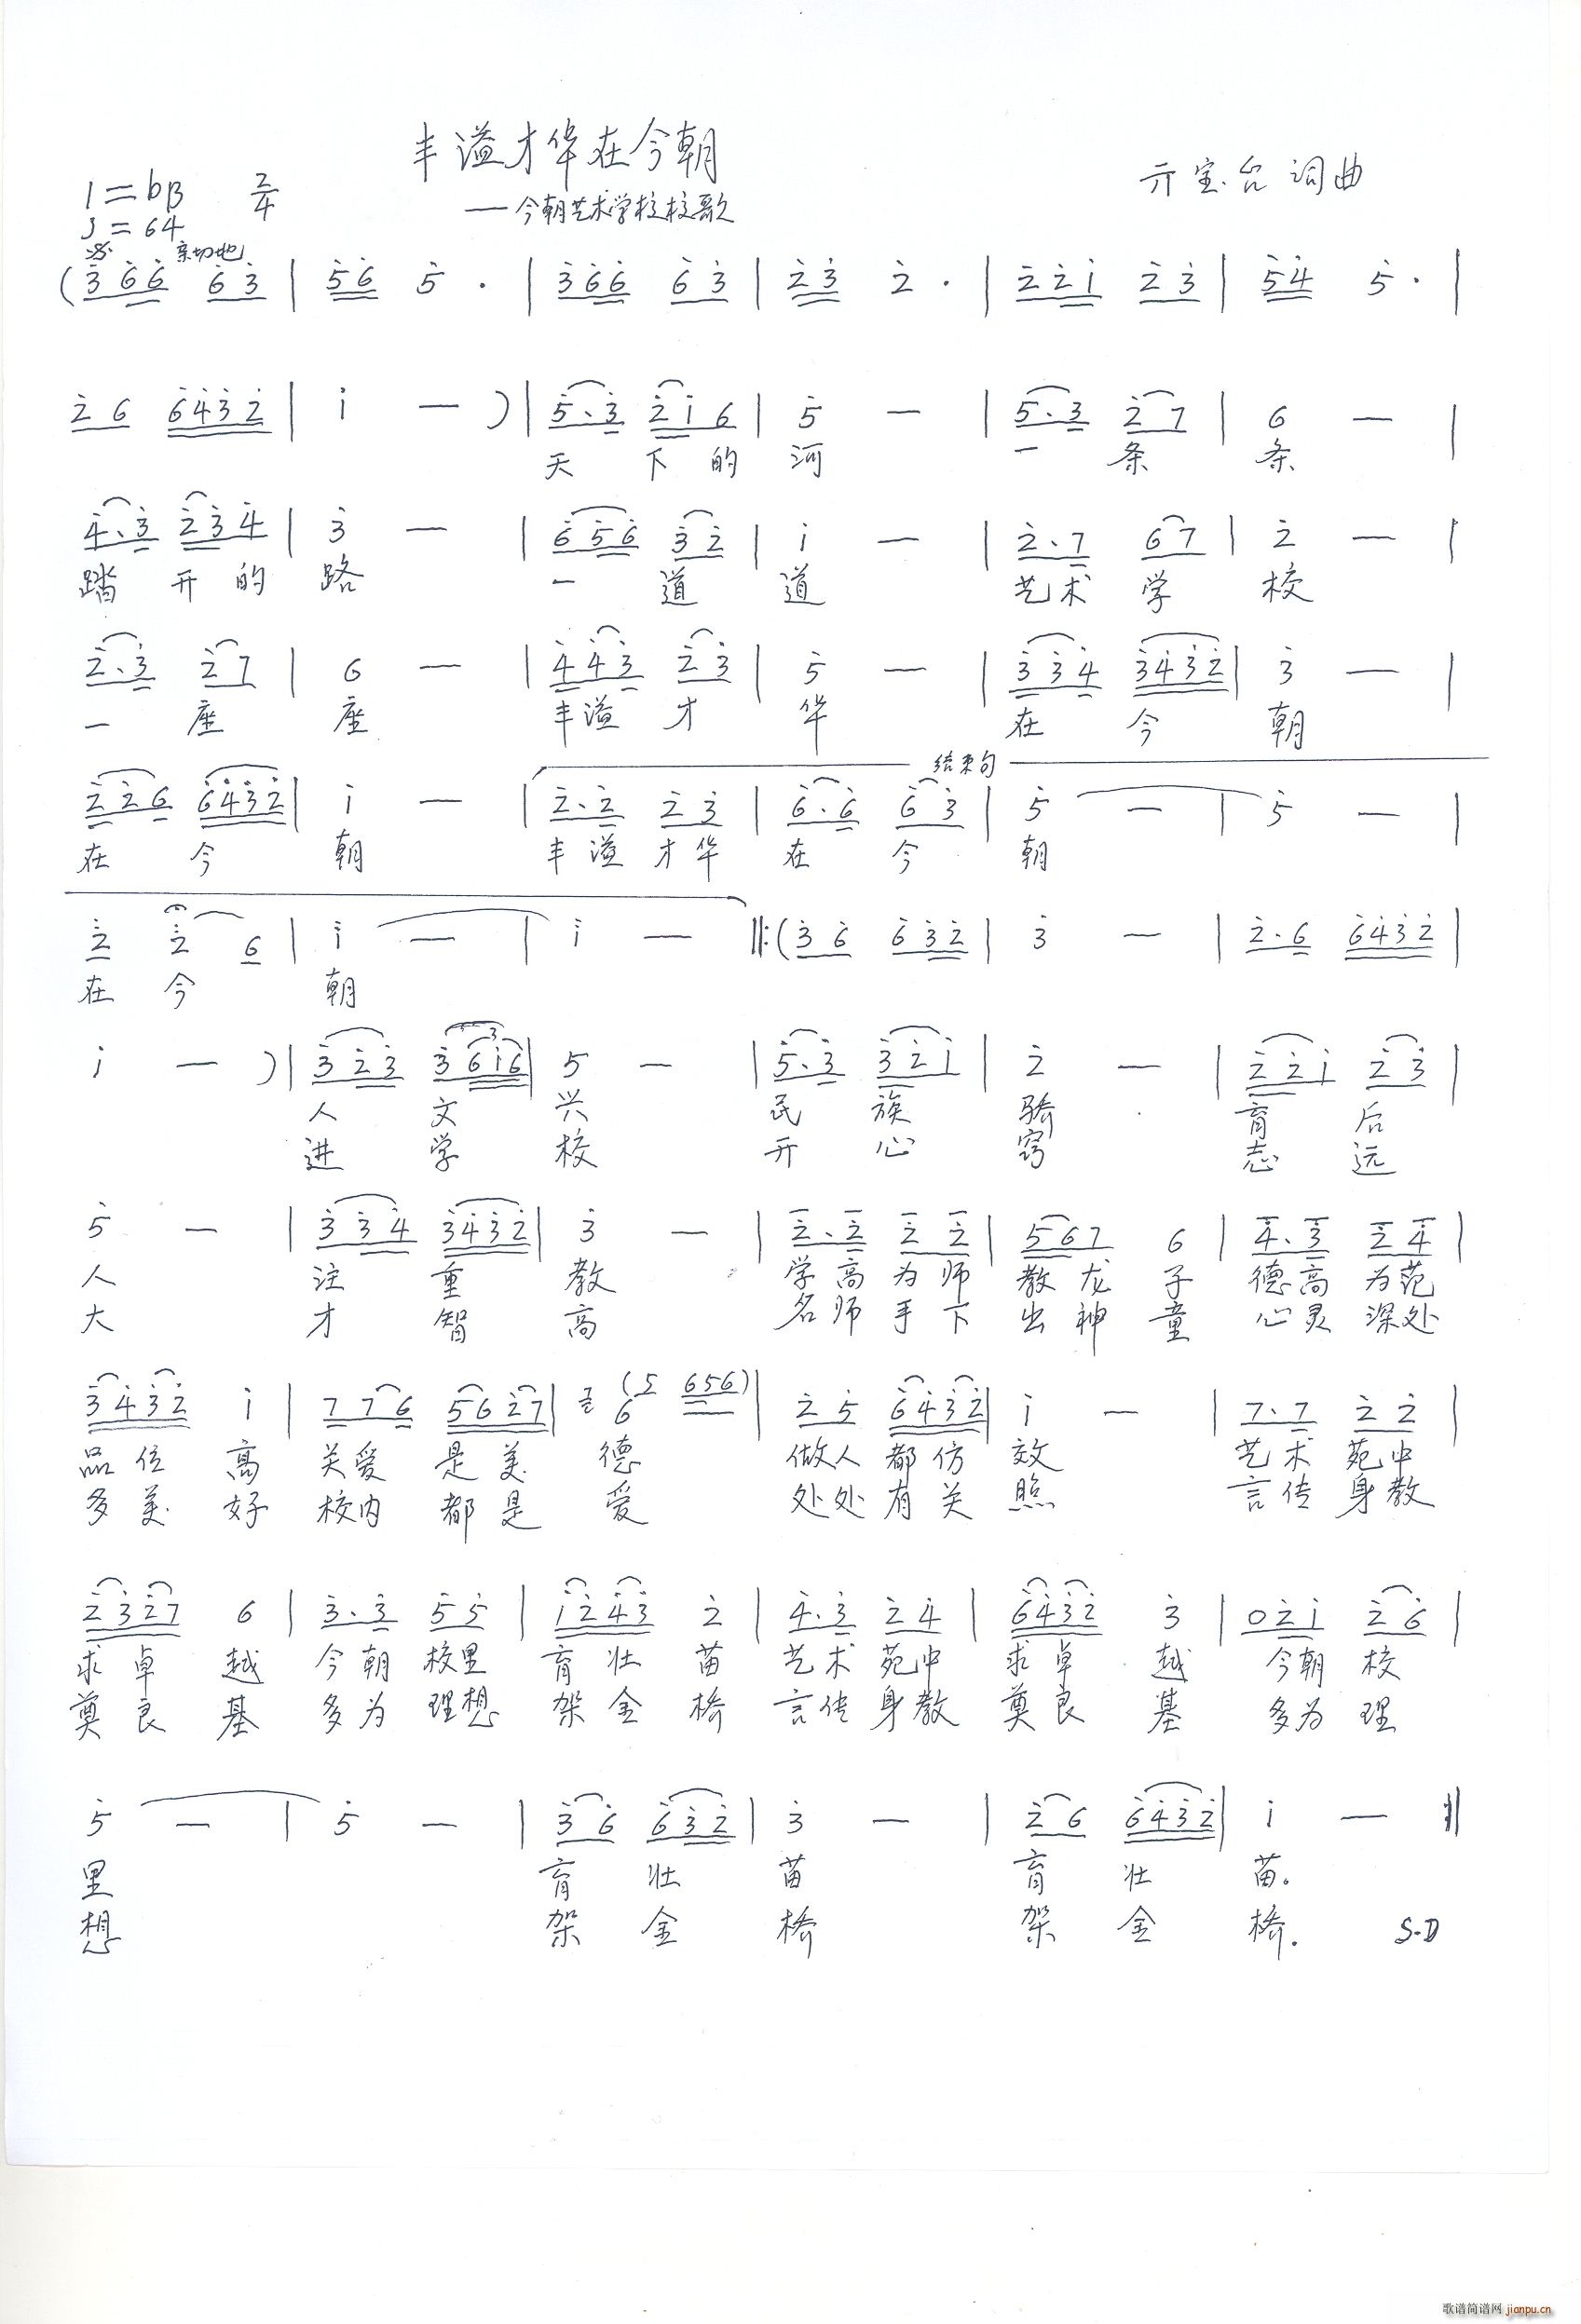 丰溢才华在今朝
——今朝艺术学校校歌
亓宝台 词曲
1=bB 2/4
♩=64
亲切地
(3̇6̇6̇ 6̇3̇ | 5̇6̇ 5̇· | 3̇6̇6̇ 6̇3̇ | 2̇3̇ 2̇· | 2̇2̇1̇ 2̇3̇ | 5̇4̇ 5̇· |
2̇6 6̇4̇3̇2̇ | 1̇ — ) | 5̇·3̇ 2̇1̇6 | 5̇ — | 5̇·3̇ 2̇7 | 6 — |
天 下的 河 一 条 条
4̇·3̇ 2̇3̇4̇ | 3̇ — | 6̇5̇6̇ 3̇2̇ | 1̇ — | 2̇·7 67 | 2̇ — |
踏 开的 路 一 道 道 艺术 学 校
2̇·3̇ 2̇7 | 6 — | 4̇4̇3̇ 2̇3̇ | 5̇ — | 3̇3̇4̇ 3̇4̇3̇2̇ | 3̇ — |
一 座 座 丰溢 才 华 在 今 朝
结束句
2̇2̇6 6̇4̇3̇2̇ | 1̇ — | 2̇·2̇ 2̇3̇ | 6̇·6̇ 6̇3̇ | 5̇ — | 5̇ — |
在 今 朝 丰溢 才华 在 今 朝
2̇ 2̇ 6 | 1̇ — | 1̇ — ‖:(3̇6̇ 6̇3̇2̇ | 3̇ — | 2̇·6 6̇4̇3̇2̇ |
在 今 朝
1̇ — ) | 3̇2̇3̇ 3̇61̇6 | 5 — | 5̇·3̇ 3̇2̇1̇ | 2̇ — | 2̇2̇1̇ 2̇3̇ |
人 文 兴 民 族 骄 育 后
进 学 校 开 心 窍 志 远
5̇ — | 3̇3̇4̇ 3̇4̇3̇2̇ | 3̇ — | 2̇·2̇ 2̇2̇ | 567 6 | 4̇·3̇ 2̇4̇ |
人 注 重 教 学高 为师 教龙 子 德高 为范
大 才 智 高 名师 手下 出神 童 心灵 深处
3̇4̇3̇2̇ 1̇ | 776 562̇7 | 6 (5 656) | 2̇5̇ 6̇4̇3̇2̇ | 1̇ — | 7·7 2̇2̇ |
品位 高 关爱 是美 德 做人 都仿 效 艺术 苑中
多美 好 校内 都是 爱 处处 有关 照 言传 身教
2̇3̇2̇7 6 | 3̇·3̇ 5̇5̇ | 1̇2̇4̇3̇ 2̇ | 4̇·3̇ 2̇4̇ | 6̇4̇3̇2̇ 3̇ | 02̇1̇ 2̇6 |
求卓 越 今朝 校里 育壮 苗 艺术 苑中 求卓 越 今朝 校
奠良 基 多为 理想 架金 桥 言传 身教 奠良 基 多为 理
5̇ — | 5̇ — | 3̇6̇ 6̇3̇2̇ | 3̇ — | 2̇6 6̇4̇3̇2̇ | 1̇ — :‖
里 育 壮 苗 育 壮 苗。
想 架 金 桥 架 金 桥. S·D
歌谱简谱网 jianpu.cn